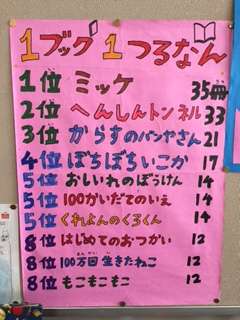 1ブック1つるなん
1位 ミッケ 35冊
2位 へんしんトンネル 33
3位 からすのパンやさん 21
4位 ぼちぼちいこか 17
5位 おしいれのぼうけん 14
5位 100かいだてのいえ 14
5位 くれよんのくろくん 14
8位 はじめてのおつかい 12
8位 100万回生きたねこ 12
8位 もこもこもこ 12